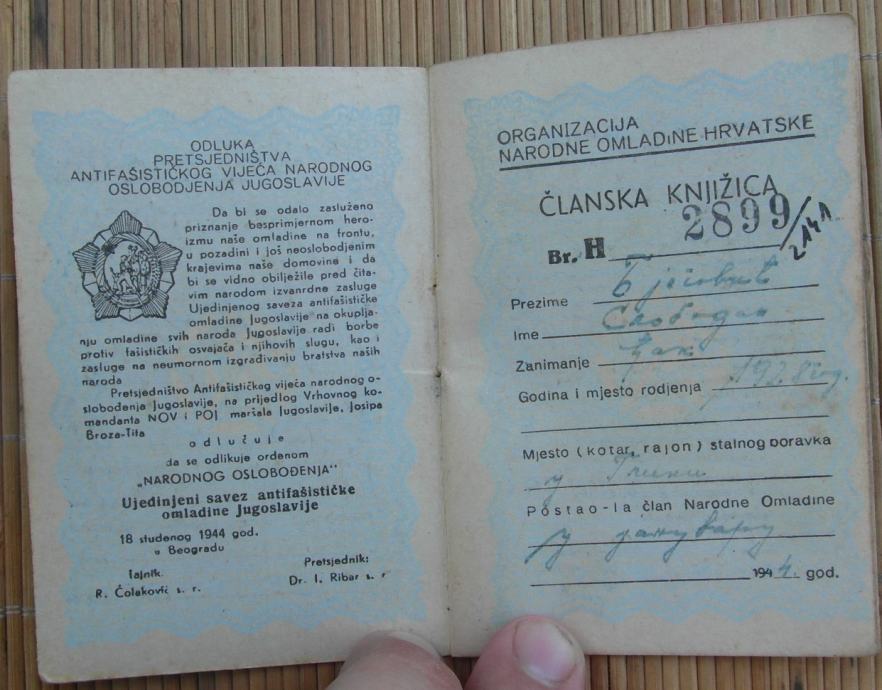 ODLUKA
PRETSJEDNIŠTVA
ANTIFAŠISTIČKOG VIJEĆA NARODNOG
OSLOBODJENJA JUGOSLAVIJE
Da bi se odalo zasluženo
priznanje besprimjernom hero-
izmu naše omladine na frontu,
u pozadini i još neoslobodjenim
krajevima naše domovine i da
bi se vidno obilježile pred čita-
vim narodom izvanrdne zasluge
Ujedinjenog saveza antifašističke
omladine Jugoslavije na okuplja-
nju omladine svih naroda Jugoslavije radi borbe
protiv fašističkih osvajača i njihovih slugu, kao i
zasluge na neumornom izgrađivanju bratstva naših
naroda
Pretsjedništvo Antifašističkog vijeća narodnog o-
slobođenja Jugoslavije, na prijedlog Vrhovnog ko-
mandanta NOV i POJ maršala Jugoslavije, Josipa
Broza-Tita
odlučuje
da se odlikuje ordenom
„NARODNOG OSLOBOĐENJA“
Ujedinjeni savez antifašističke
omladine Jugoslavije
18 studenog 1944 god.
u Beogradu
Tajnik
Pretsjednik:
R. Čolaković s. r.
Dr. I. Ribar s. r
ORGANIZACIJA
NARODNE OMLADINE HRVATSKE
ČLANSKA KNJIŽICA
Br. H 2899/2141
Prezime
Ime Слободан
Zanimanje ђак
Godina i mjesto rodjenja 1928 год.
Mjesto (kotar, rajon) stalnog boravka
у
Postao-la član Narodne Omladine
у јануару
1944. god.